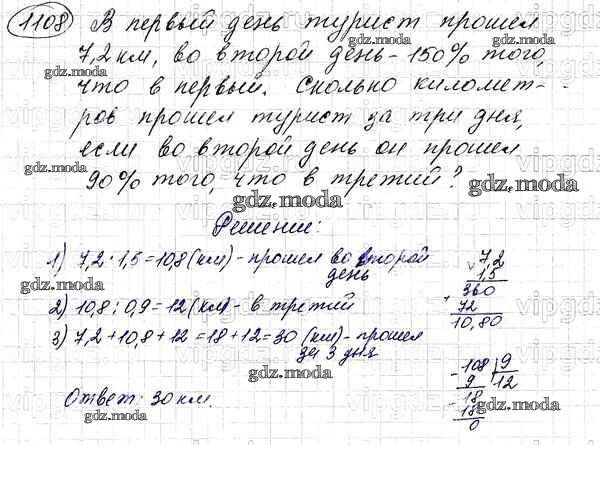 1108 В первый день турист прошел
7,2 км, во второй день - 150% того,
что в первый. Сколько километ-
ров прошел турист за три дня,
если во второй день он прошел
90% того, что в третий?
Решение:
1) 7,2 · 1,5 = 10,8 (км) - прошел во второй
день
2) 10,8 : 0,9 = 12 (км) - в третий
3) 7,2 + 10,8 + 12 = 18 + 12 = 30 (км) - прошел
за 3 дня
Ответ: 30 км.
× 7,2
1,5
+ 360
72
10,80
- 108 9
9 12
- 18
18
0
gdz.moda
gdz.moda
gdz.moda
gdz.moda
gdz.moda
gdz.moda
gdz.moda
gdz.moda
gdz.moda
gdz.moda
gdz.moda
gdz.moda